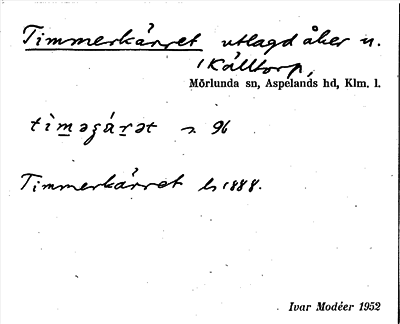 Timmerkärret utlagd åker n.
1 Källtorp,
Mörlunda sn, Aspelands hd, Klm. l.
tìməgárət 96
Timmerkärret 1888.
Ivar Modéer 1952